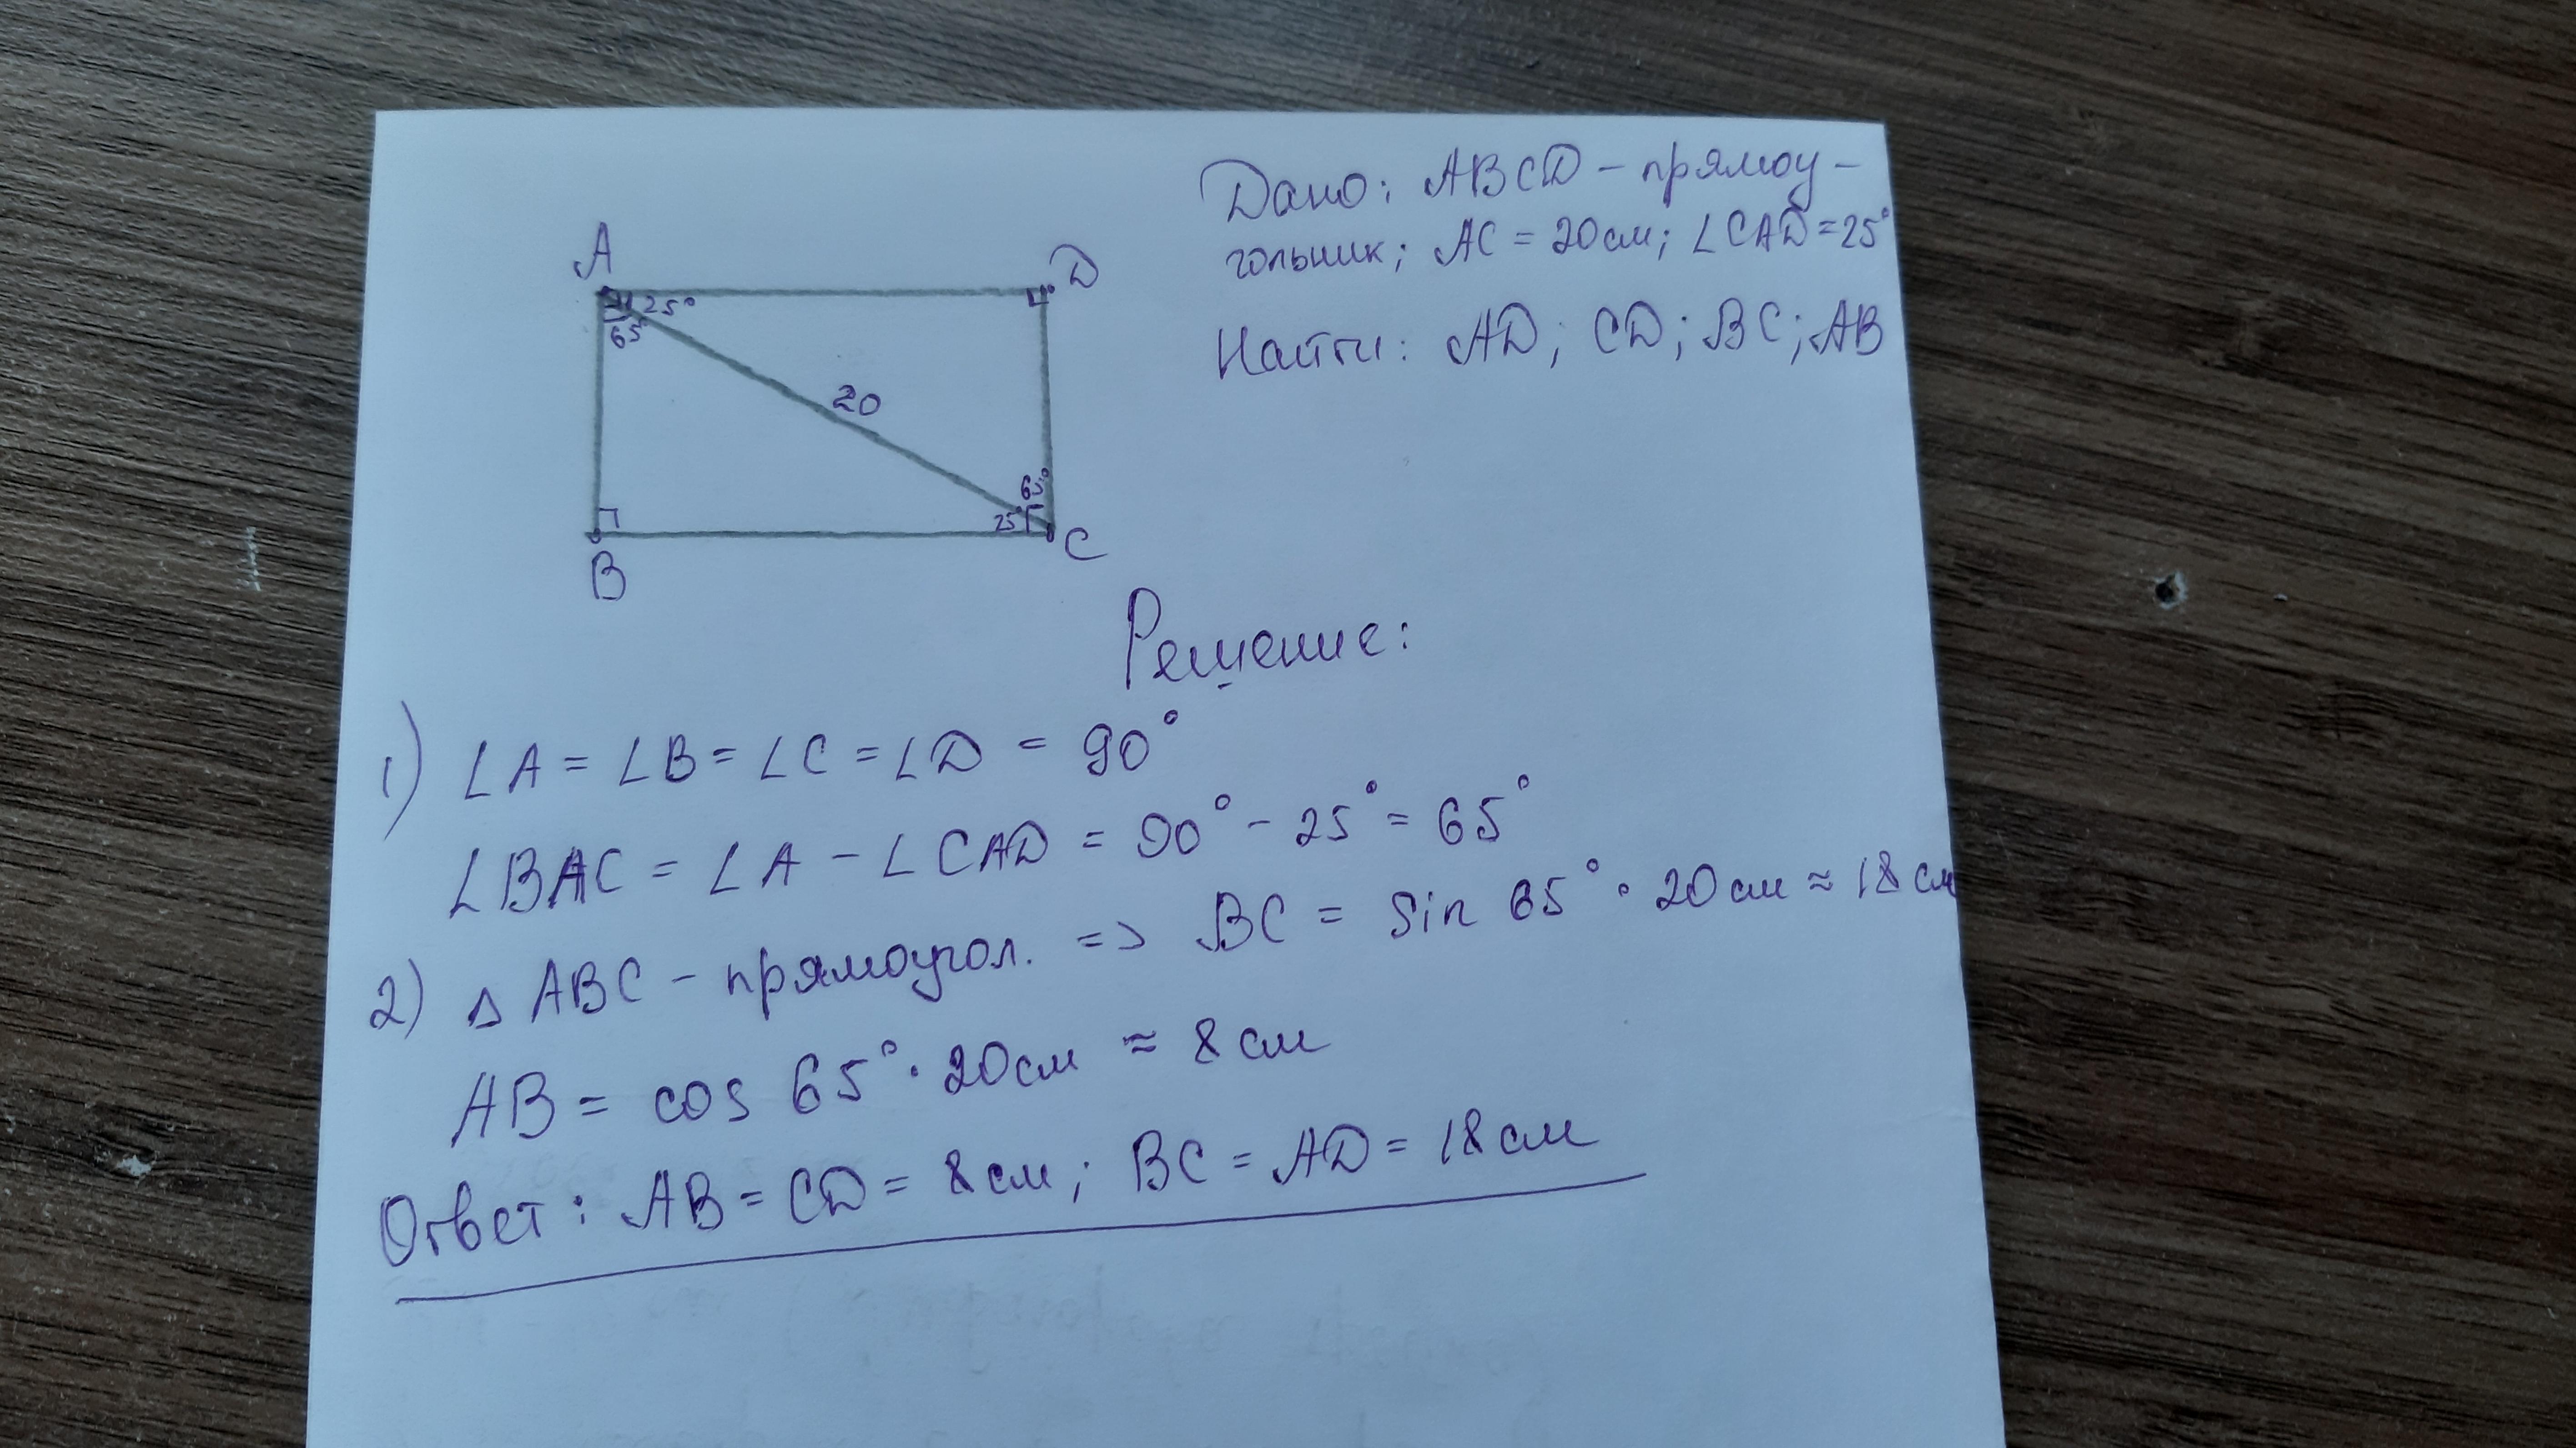 Дано: ABCD – прямоу-
гольник; AC = 20см; ∠CAD = 25°
Найти: AD; CD; BC; AB
A
D
25°
65
20
65°
25°
B
C
Решение:
1) ∠A = ∠B = ∠C = ∠D = 90°
∠BAC = ∠A – ∠CAD = 90° – 25° = 65°
2) △ ABC – прямоугол. => BC = sin 65° · 20см ≈ 18 см
AB = cos 65° · 20см ≈ 8 см
Ответ: AB = CD = 8см; BC = AD = 18см